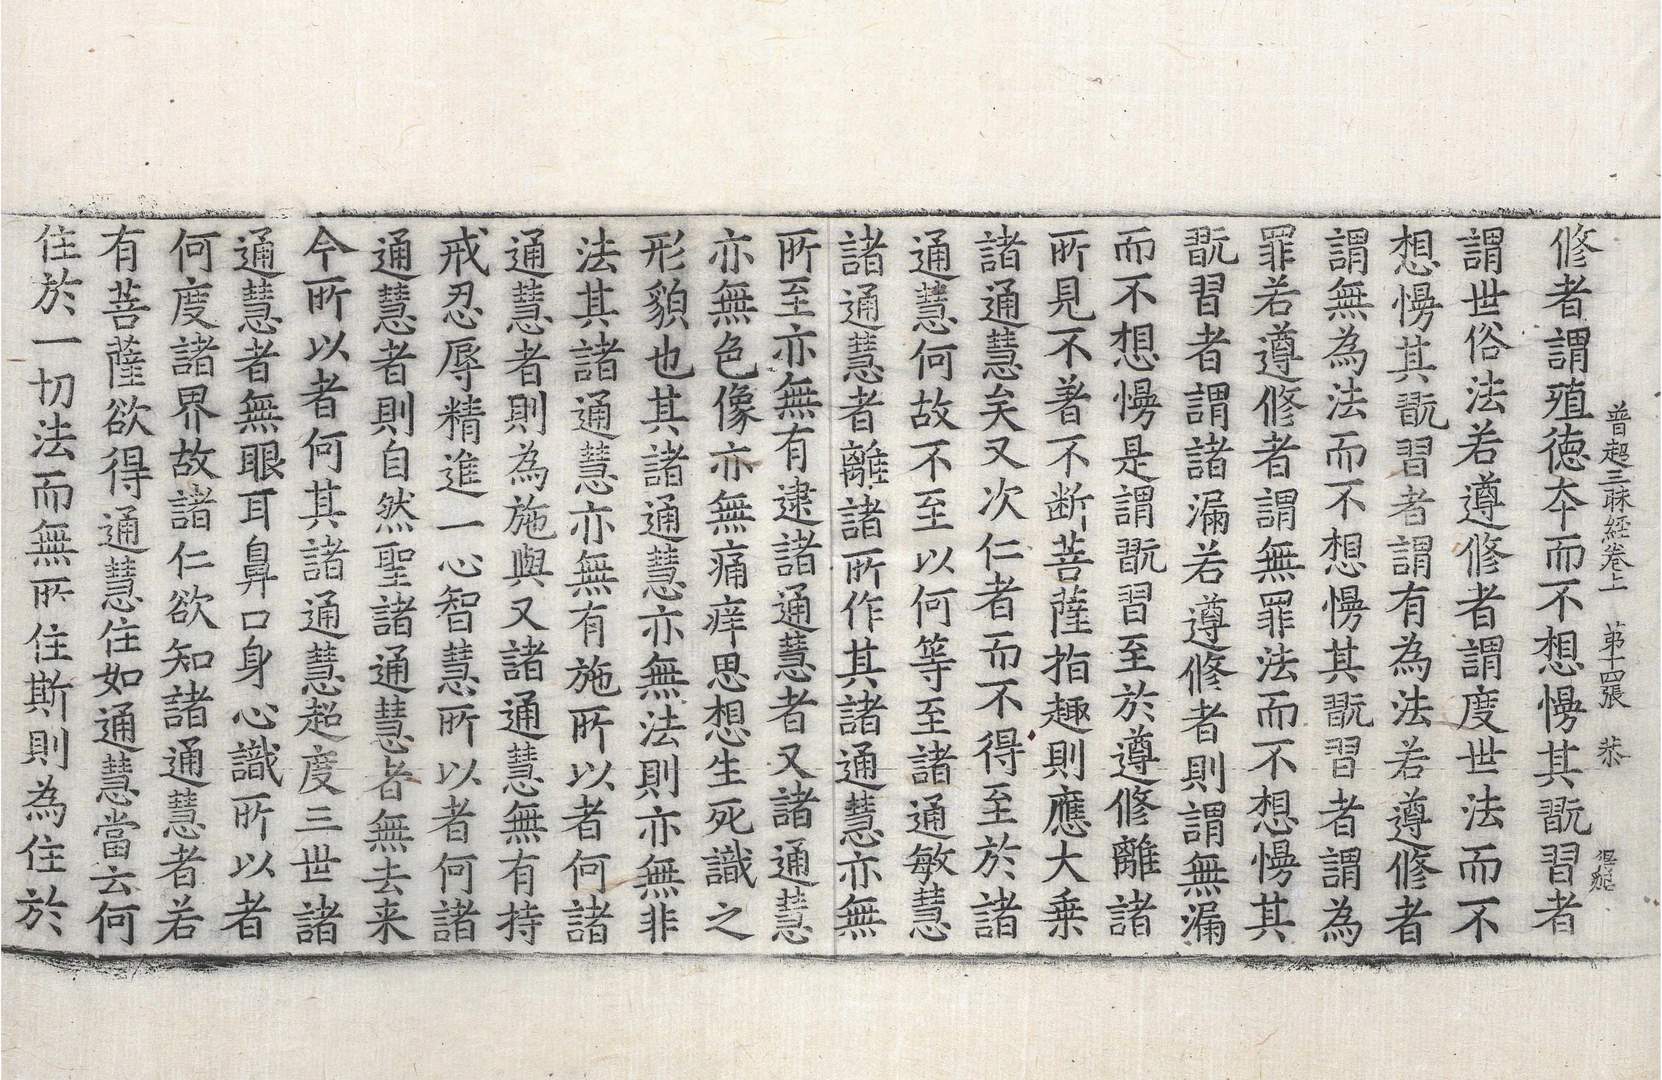 普超三昧經卷上　第十四張　恭
修者謂殖德本而不想慢其翫習者
謂世俗法若遵修者謂度世法而不
想慢其翫習者謂有為法若遵修者
謂無為法而不想慢其翫習者謂為
罪若遵修者謂無罪法而不想慢其
翫習者謂諸漏若遵修者則謂無漏
而不想慢是謂翫習至於遵修離諸
所見不著不斷菩薩指趣則應大乘
諸通慧矣又次仁者而不得至於諸
通慧何故不至以何等至諸通敏慧
諸通慧者離諸所作其諸通慧亦無
所至亦無有逮諸通慧者又諸通慧
亦無色像亦無痛痒思想生死識之
形貌也其諸通慧亦無法則亦無非
法其諸通慧亦無有施所以者何諸
通慧者則為施與又諸通慧無有持
戒忍辱精進一心智慧所以者何諸
通慧者則自然聖諸通慧者無去来
今所以者何其諸通慧超度三世諸
通慧者無眼耳鼻口身心識所以者
何度諸界故諸仁欲知諸通慧者若
有菩薩欲得通慧住如通慧當云何
住於一切法而無所住斯則為住於